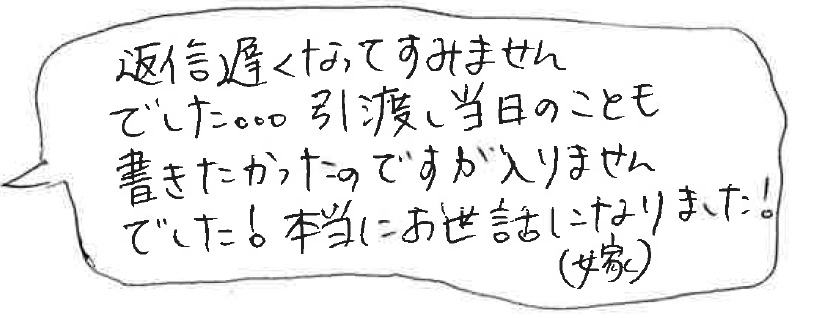 返信遅くなってすみません
でした... 引渡し当日のことも
書きたかったのですが入りません
でした! 本当にお世話になりました!
(嫁)